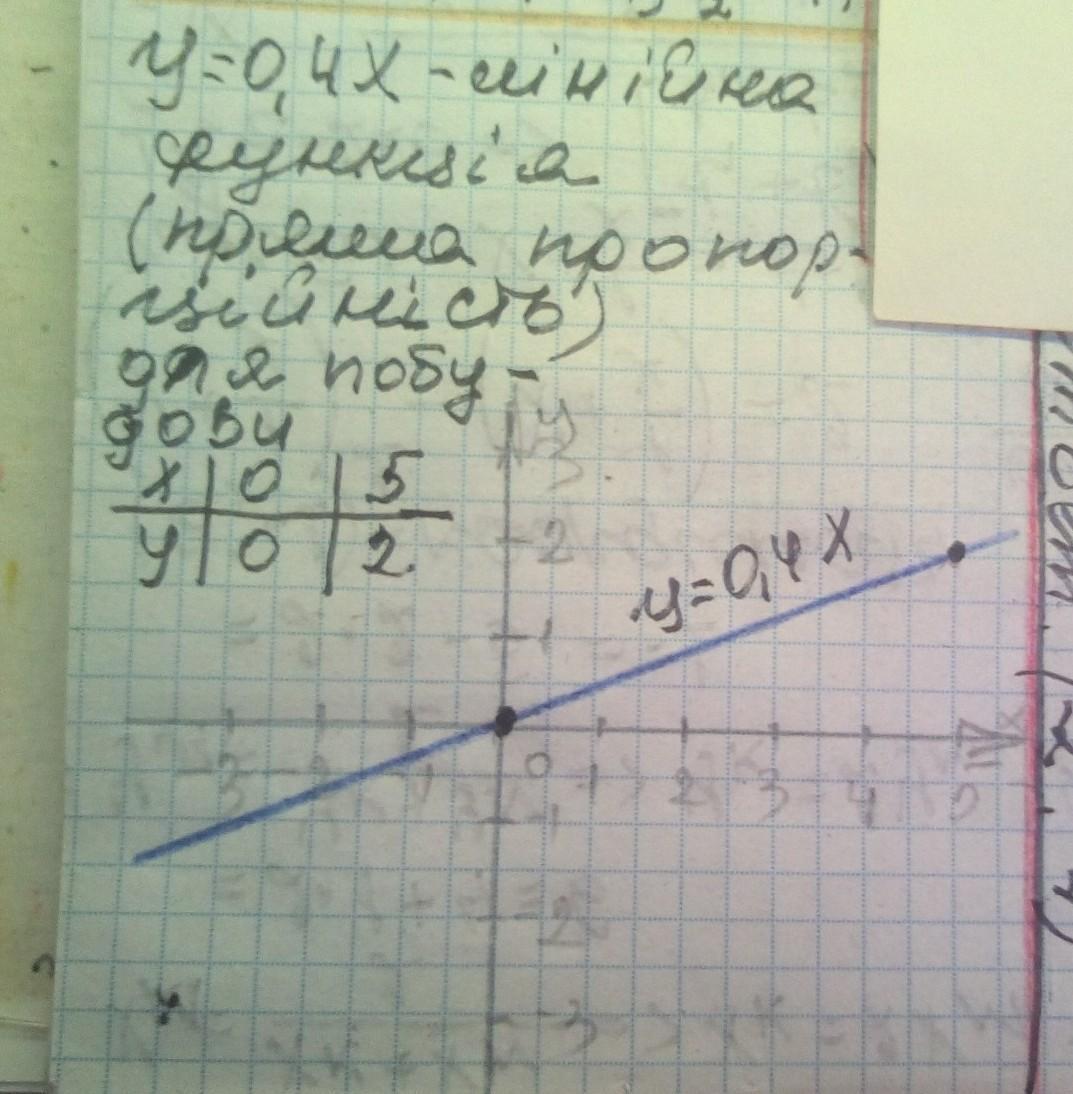 y=0,4x - лінійна
функція
(пряма пропор-
ційність)
для побу-
дови
x | 0 | 5
y | 0 | 2
y
3
2
y=0,4x
1
x
-3 -2 -1 0 1 2 3 4 5
-1
-2
-3